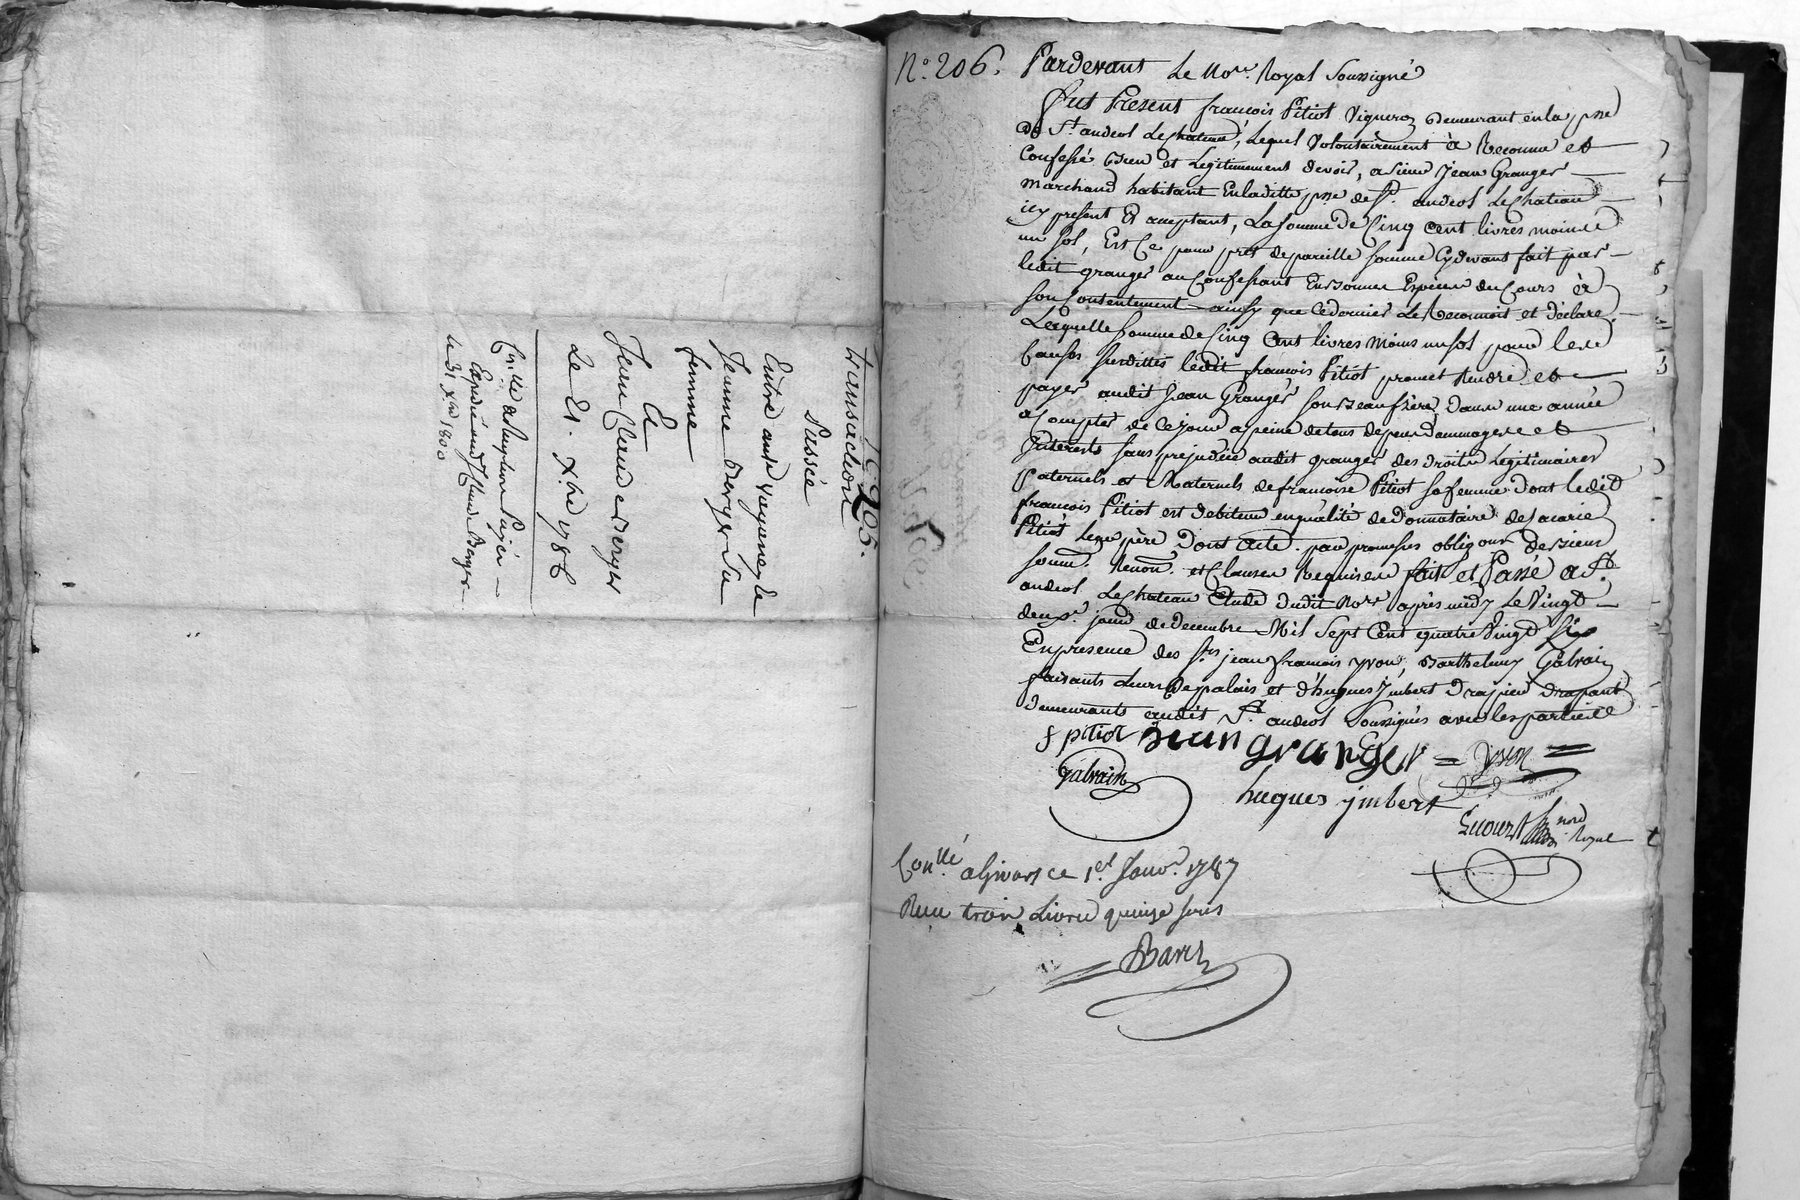 N. 205.
Transaction
Passée
Entre antre Jeanne Berger sa
femme
Et
Jean Claude Berger
Le 21. Xbre 1786
Expédié aud. Claude Berger
N° 206. Pardevant Le Nore. Royal Soussigné
fut Present francois Pitiot Vigneron demeurant en la psse
de St. andeol Le Chateau, Lequel Volontairement à Reconnu et
Confessé bien et Legitimement devoir, a sieur Jean Granger
marchand habitant En laditte psse de St. andeol Le Chateau
icy present Et acceptant, La somme de Cinq cent livres moins
un sol, Et Ce pour prêt de pareille somme Cydevant fait par
ledit granger au Confessant En bonnes Espèces du Cours à
son Contentement ainsy que Ce dernier Le Reconnoit et déclare
Laquelle somme de Cinq Cent livres moins un sol pour les
Causes susdittes ledit francois Pitiot promet Rendre et
payer audit Jean Granger son beau frère, dans une année
a Compter de Ce jour a peine de tous depens dommages et
Interests sans prejudice audit granger des droits Legitimaires
Paternels et Maternels de francoise Pitiot sa femme dont ledit
francois Pitiot est debiteur en qualité de Donnataire de Sacarie
Pitiot Leur père Dont Acte. par promesses obligaon de biens
soum. Renon. et Clauses Requises fait et Passé a St.
andeol Le Chateau Etude dudit Nore après midy Le Vingt
deuxe. jour de decembre Mil Sept Cent quatre Vingt Six
En presence des Srs jean francois yvon, Barthelemy Galvain
et d'hugues jmbert Drapier drapant
demeurants audit St. andeol Soussignés avec les parties
f pitiot Jean granger = yvon =
Galvain
hugues jmbert
nore
Royal
Conllé a Givors ce 1er Janvr. 1787
Reçu trois Livres quinze sous